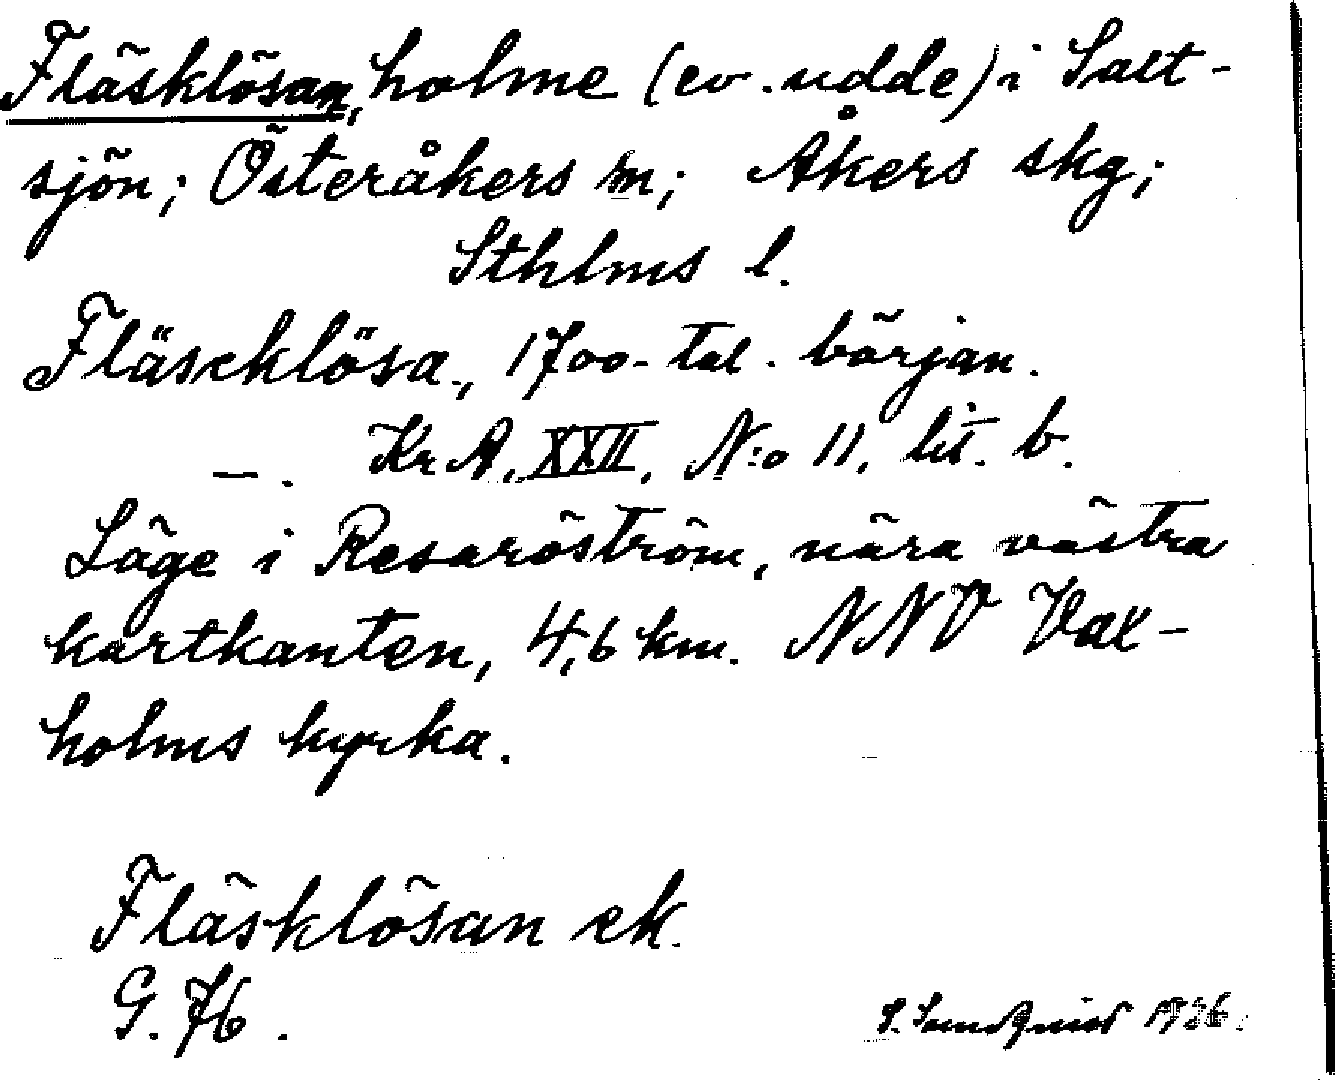 Fläsklösan, holme (ev. udde) i Salt-
sjön; Österåkers sn; Åkers skg;
Sthlms l.
Fläscklösa, 1700-tal. början.
—. KrA, XXII, N:o 11, lit. b.
Läge i Resaröström, nära västra
kartkanten, 4,6 km. NNV Vax-
holms kyrka.
Fläsklösan ek.
G. 76.
S. 1936.